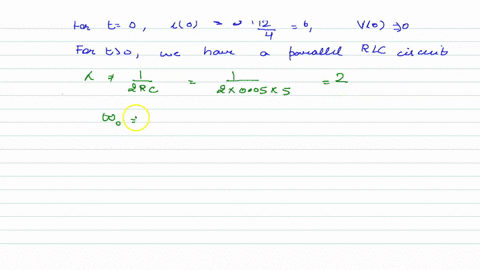 for t= 0, i(0) = 12/4 = 6, V(0) = 0
For t>0, we have a parallel RLC circuit
α = 1/2RC = 1/2×0.05×5 = 2
ω₀ =